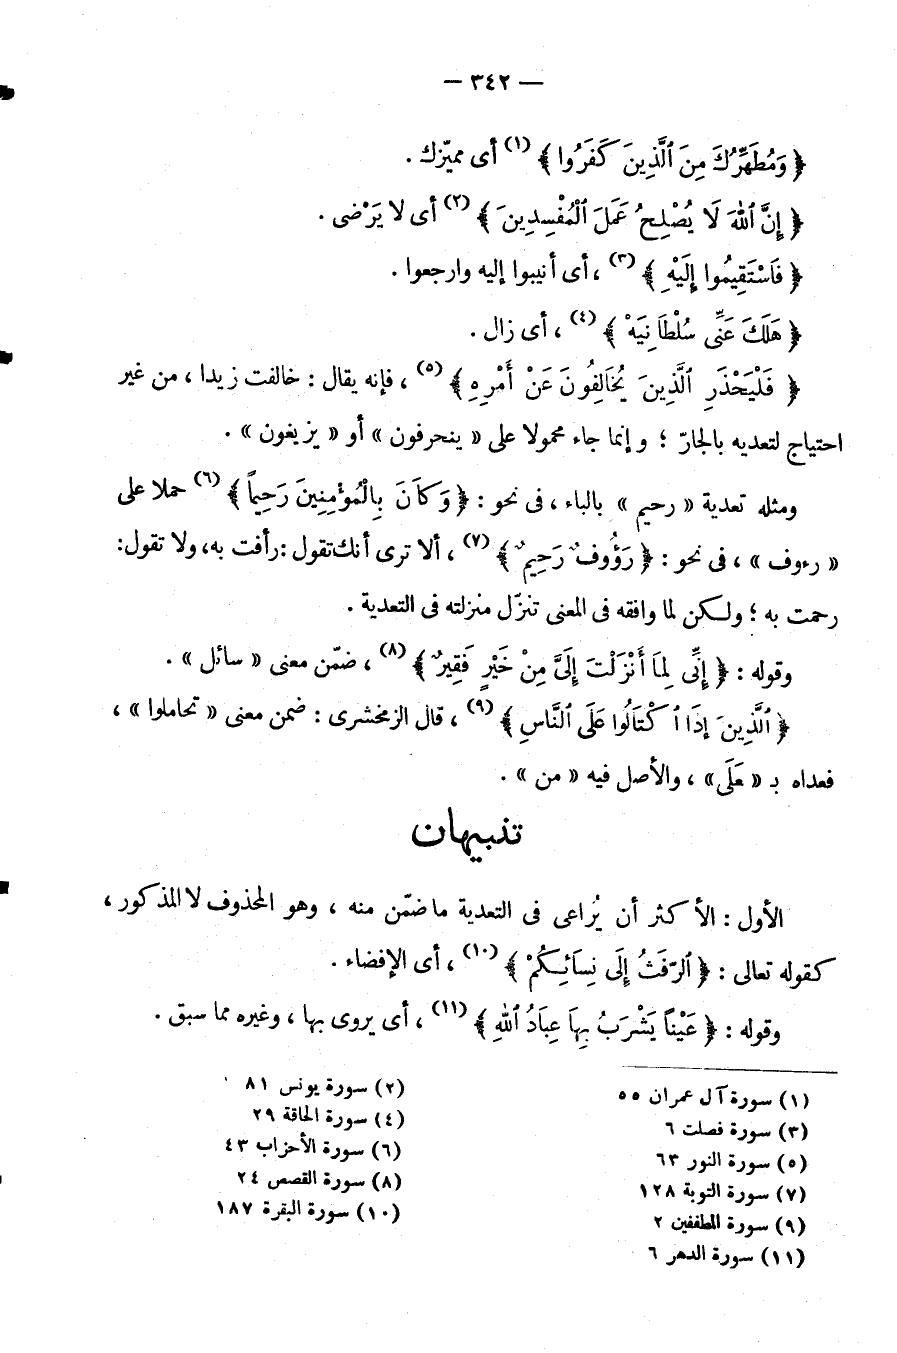 — ٣٤٢ —
﴿ وَمُطَهِّرُكَ مِنَ ٱلَّذِينَ كَفَرُوا ﴾ (١) أى مميّزك .
﴿ إِنَّ ٱللهَ لَا يُصْلِحُ عَمَلَ ٱلْمُفْسِدِينَ ﴾ (٢) أى لا يَرْضى .
﴿ فَاسْتَقِيمُوا إِلَيْهِ ﴾ (٣) ، أى أنيبوا إليه وارجعوا .
﴿ هَلَكَ عَنِّى سُلْطَانِيَهْ ﴾ (٤) ، أى زال .
﴿ فَلْيَحْذَرِ ٱلَّذِينَ يُخَالِفُونَ عَنْ أَمْرِهِ ﴾ (٥) ، فإنه يقال : خالفت زيدا ، من غير
احتياج لتعديه بالجارّ ؛ وإنما جاء محمولا على « ينحرفون » أو « يزيغون » .
ومثله تعدية « رحيم » بالباء ، فى نحو : ﴿ وَكَانَ بِالْمُؤْمِنِينَ رَحِيماً ﴾ (٦) حملا على
« رءوف » ، فى نحو : ﴿ رَؤُوفٌ رَحِيمٌ ﴾ (٧) ، ألا ترى أنك تقول : رأفت به، ولا تقول:
رحمت به ؛ ولكن لما وافقه فى المعنى تنزّل منزلته فى التعدية .
وقوله : ﴿ إِنِّى لِمَا أَنْزَلْتَ إِلَىَّ مِنْ خَيْرٍ فَقِيرٌ ﴾ (٨) ، ضمّن معنى « سائل » .
﴿ ٱلَّذِينَ إِذَا ٱكْتَالُوا عَلَى ٱلنَّاسِ ﴾ (٩) ، قال الزمخشرى : ضمن معنى « تحاملوا » ،
فعداه بـ « عَلَى» ، والأصل فيه « من » .
تنبيهان
الأول : الأكثر أن يُراعى فى التعدية ما ضمّن منه ، وهو المحذوف لا المذكور ،
كقوله تعالى : ﴿ ٱلرَّفَثُ إِلَى نِسَائِكُمْ ﴾ (١٠) ، أى الإفضاء .
وقوله : ﴿ عَيْناً يَشْرَبُ بِهَا عِبَادُ ٱللهِ ﴾ (١١) ، أى يروى بها ، وغيره مما سبق .
(١) سورة آل عمران ٥٥
(٢) سورة يونس ٨١
(٣) سورة فصلت ٦
(٤) سورة الحاقة ٢٩
(٥) سورة النور ٦٣
(٦) سورة الأحزاب ٤٣
(٧) سورة التوبة ١٢٨
(٨) سورة القصص ٢٤
(٩) سورة المطففين ٢
(١٠) سورة البقرة ١٨٧
(١١) سورة الدهر ٦